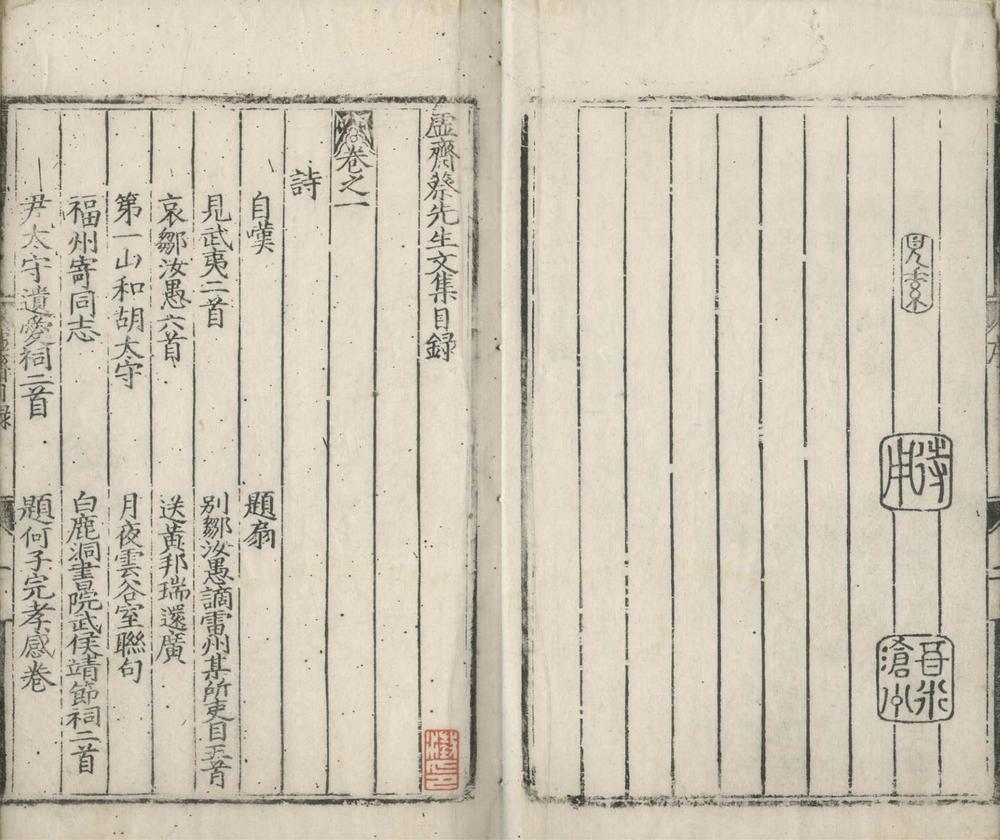 見素
待用
虛齋蔡先生文集目録
卷之一
詩
自嘆
題扇
見武夷二首
别鄒汝愚謫雷州某所吏目五首
哀鄒汝愚六首
送黃邦瑞還廣
第一山和胡太守
月夜雲谷室聯句
福州寄同志
白鹿洞書院武侯靖節祠二首
尹太守遺愛祠二首
題何子完孝感卷